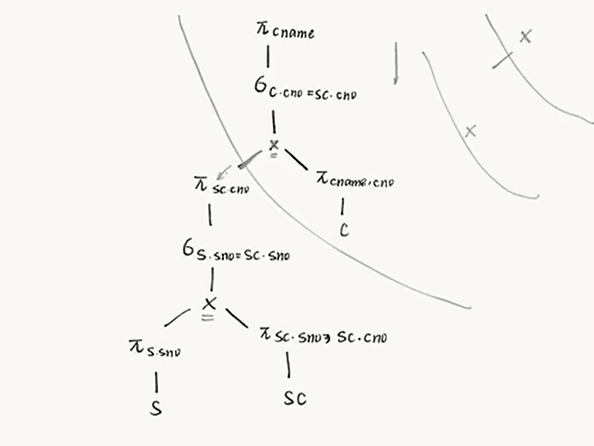 π cname
σ C.cno=SC.cno
×
×
×
π SC.cno
π cname,cno
C
σ S.sno=SC.sno
×
π S.sno
π SC.sno, SC.cno
S
SC